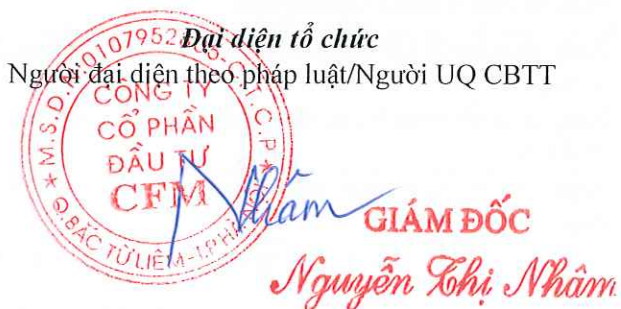 Đại diện tổ chức
Người đại diện theo pháp luật/Người UQ CBTT
CÔNG TY
CỔ PHẦN
ĐẦU TƯ
CFM
Q.BẮC TỪ LIÊM-T.P HÀ
Nhâm
GIÁM ĐỐC
Nguyễn Thị Nhâm